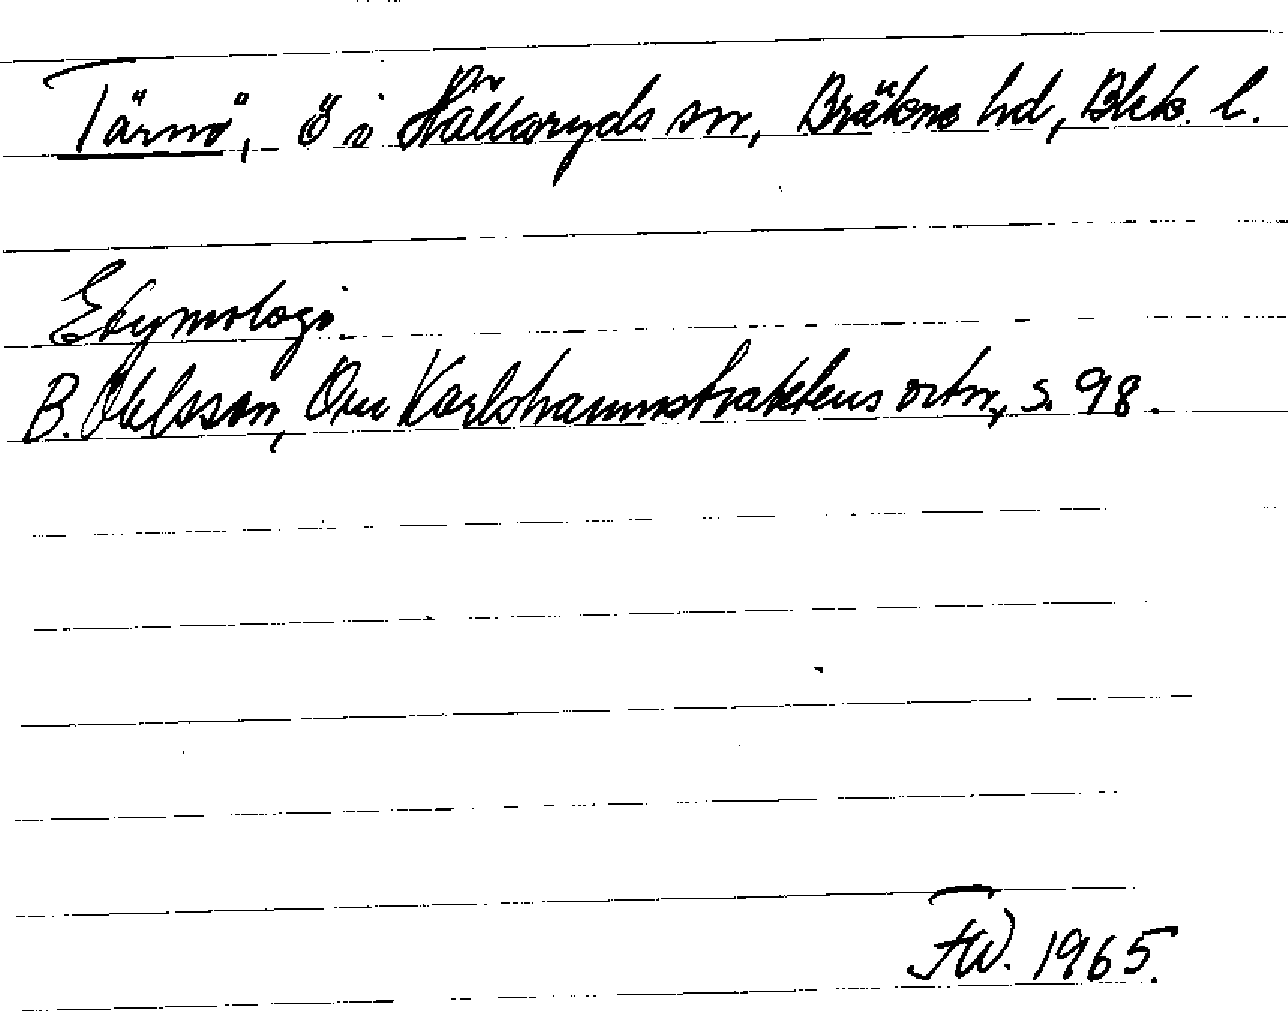 Tärnö, Ö i Hällaryds sn, Bräkne hd, Blek. l.
Etymologi.
B. Ohlsson, Om Karlshamnstraktens ortn, s. 98.
FW. 1965.